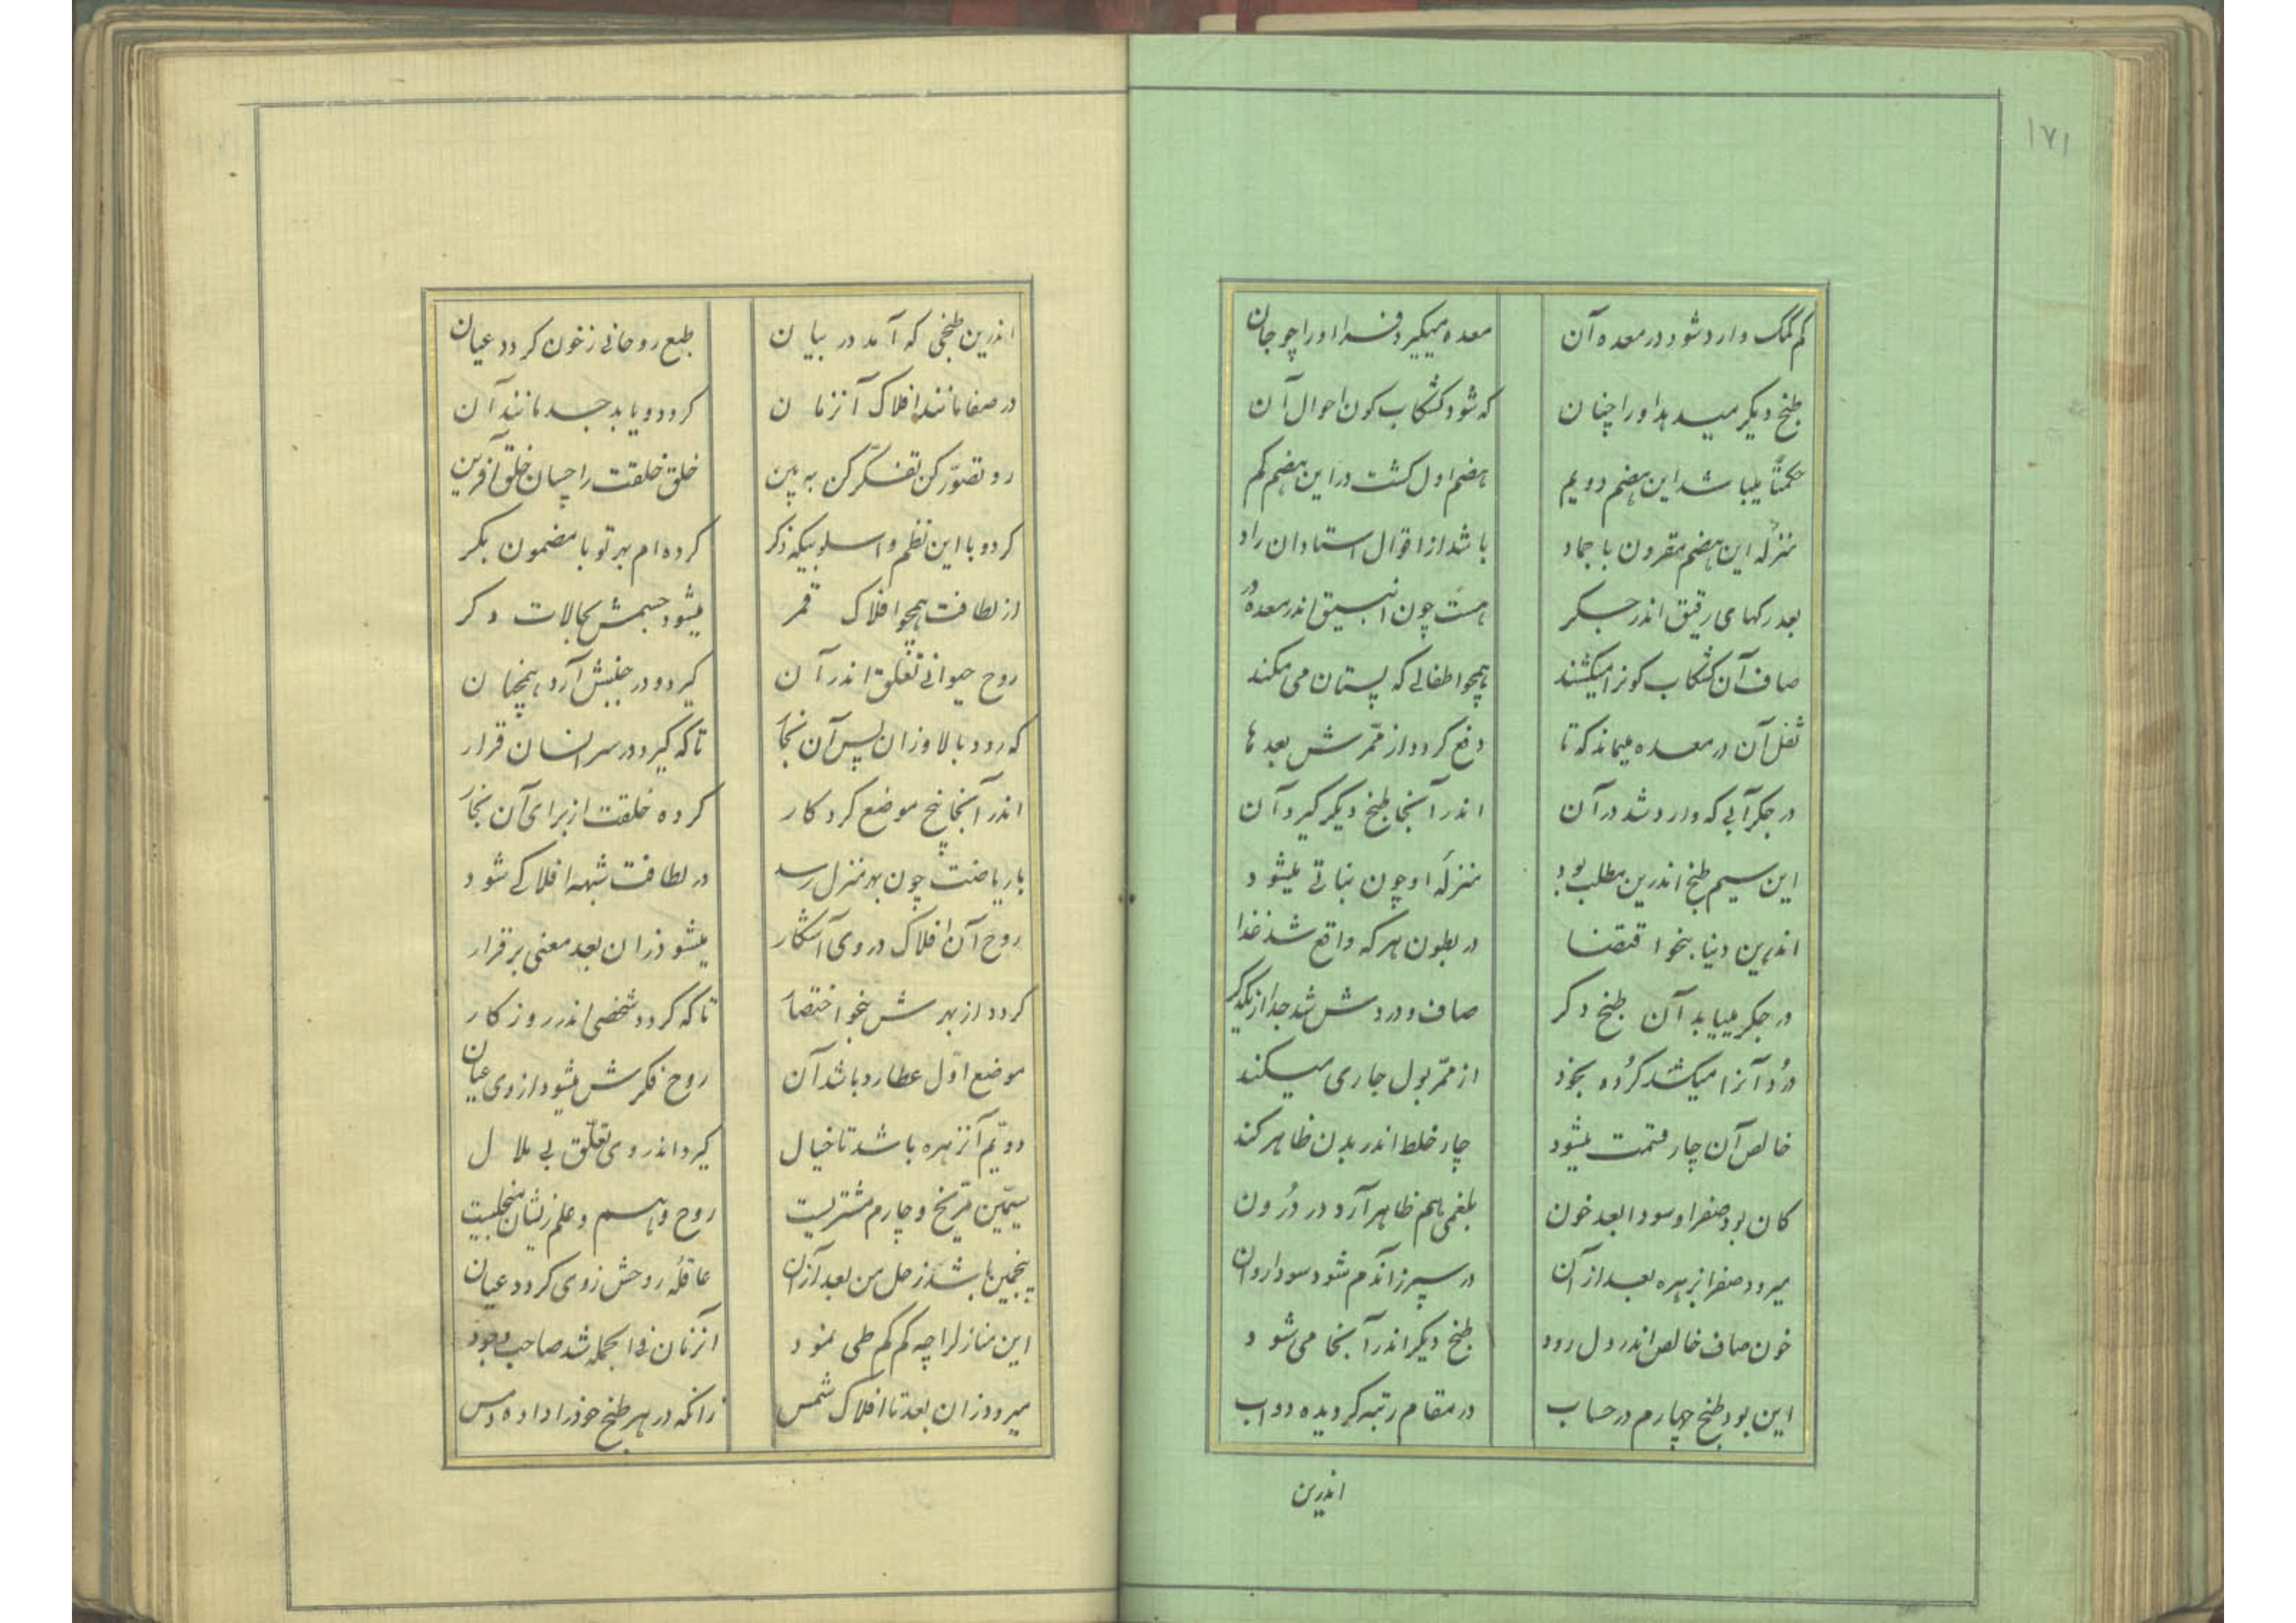 ۱۷۱
کم کمک وارد شود در معده آن
معده میگیرد فرا او را چو جان
طبخ دیگر میدهد او را چنان
که شود کشکاب کون احوال آن
حکمتاً میباشد این هضم دویم
هضم اول گشت در این هضم کم
منزله این هضم مقرون با جماد
باشد از اقوال استادان راد
بعد رکهای رقیق اندر جکر
هست چون انبیق اندر معده در
صاف آن کشکاب کونرا میکشند
همچو اطفالی که پستان می مکند
ثفل آن در معده میماند که تا
دفع کردد از ممرش بعدها
در جکر آبی که وارد شد در آن
اندر آنجا طبخ دیکر کیرد آن
این سیم طبخ اندرین مطلب بود
منزله او چون نباتی میشود
اندرین دنیا بنحو اقتضا
در بطون هر که واقع شد غذا
در جکر مییابد آن طبخ دکر
صاف و دردش شد جدا از یکدکر
دُرد آنرا میکشد کُرده بخود
از ممرّ بول جاری میکند
خالص آن چار قسمت میشود
چار خلط اندر بدن ظاهر کند
کان بود صفرا و سودا بعد خون
بلغمی هم ظاهر آرد در درُون
میرود صفرا بزهره بعد از آن
در سپرز آندم شود سودا روان
خون صاف خالص اندر دل رود
طبخ دیکر اندر آنجا می شود
این بود طبخ چهارم در حساب
در مقام رتبه کردیده دواب
اندرین
اندرین طبخی که آمد در بیان
طبع روحانی ز خون کردد عیان
در صفا مانند افلاک آنزمان
کردد و یابد جسد مانند آن
رو تصوّر کن تفکّر کن به بین
خلق خلقت را چسان خلق آفرین
کرد و با این نظم و اسلوبیکه ذکر
کرده ام بهر تو با مضمون بکر
از لطافت همچو افلاک قمر
میشود جسمش بحالات دکر
روح حیوانی تعلّق اندر آن
کیرد و در جنبش آرد همچنان
که رود بالا وزان پس آن بخار
تا که کیرد در سر انسان قرار
اندر آنجا پنج موضع کردکار
کرده خلقت از برای آن بخار
با ریاضت چون بهر منزل رسد
در لطافت شبهه افلاکی شود
روح آن افلاک در وی آشکار
میشود زان بعد معنی برقرار
کردد از بهرش بنحو اختصار
تا که کردد شخصی اندر روزکار
موضع اوّل عطارد باشد آن
روح فکرش میشود از وی عیان
دویّم آن زهره باشد تا خیال
کیرد اندر وی تعلّق بی ملال
سیّمین مرّیخ و چارم مشتریست
روح وهم و علم زیشان منجلیست
پنجمین باشد زحل من بعد از آن
عاقله روحش زوی کردد عیان
این منازلرا چه کم کم طی نمود
آنزمان فی الجمله شد صاحب وجود
میرود زان بعد تا افلاک شمس
زانکه در هر طبخ خود را داده مس